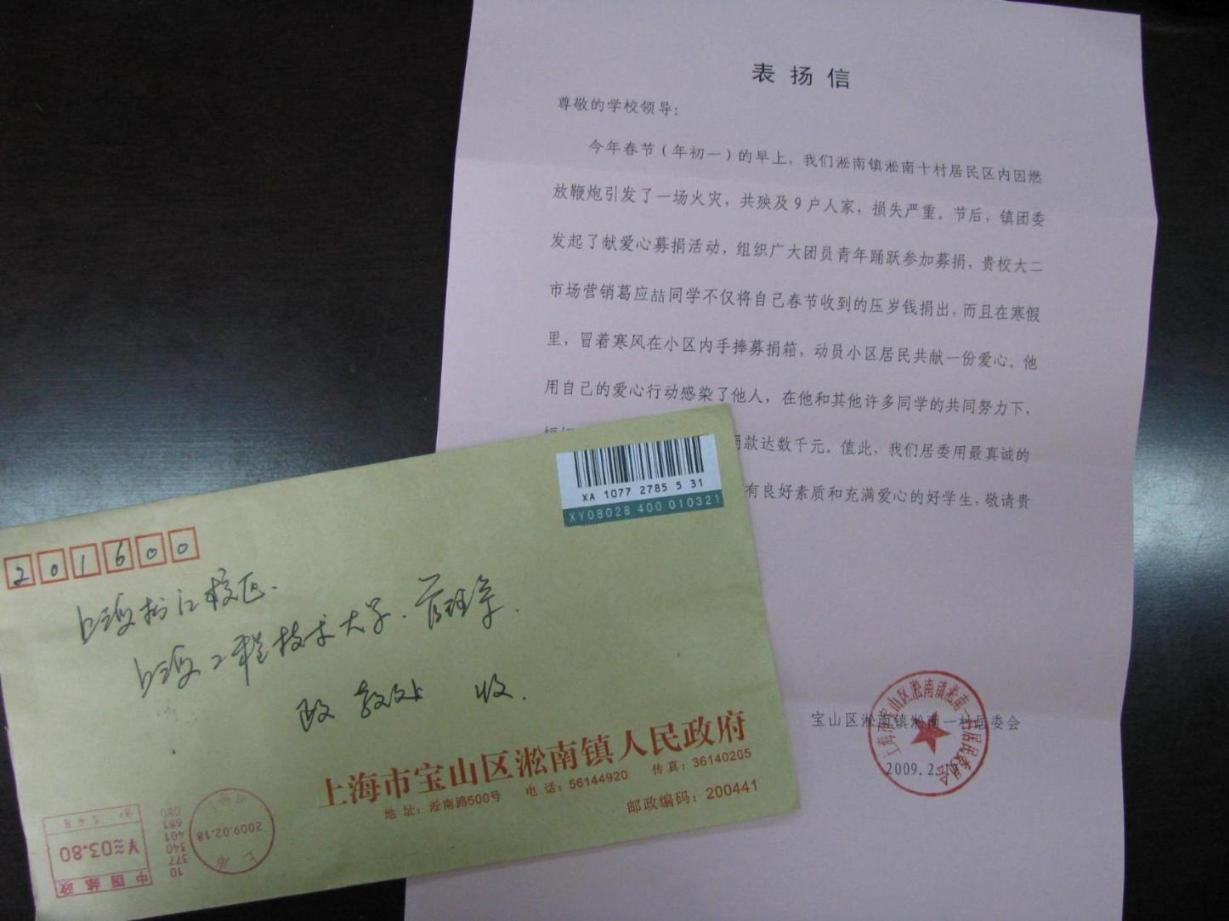 表扬信
尊敬的学校领导:
今年春节(年初一)的早上,我们淞南镇淞南十村居民区内因燃
放鞭炮引发了一场火灾,共殃及9户人家,损失严重。节后,镇团委
发起了献爱心募捐活动,组织广大团员青年踊跃参加募捐,贵校大二
市场营销葛应喆同学不仅将自己春节收到的压岁钱捐出,而且在寒假
里,冒着寒风在小区内手捧募捐箱,动员小区居民共献一份爱心。他
用自己的爱心行动感染了他人,在他和其他许多同学的共同努力下,
款达数千元。值此,我们居委用最真诚的
有良好素质和充满爱心的好学生,敬请贵
宝山区淞南镇淞南一村居委会
2009.2.
XA 1077 2785 5 31
XY08028 400 010321
201600
上海松江校区.
上海工程技术大学.管理学
政教处 收.
上海市宝山区淞南镇人民政府
地址:淞南路500号 电话:56144920 传真:36140205
邮政编码:200441
上海
2009.02.18
中国邮政
¥≈03.80
10
377
340
401